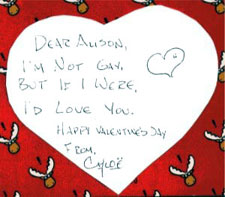 DEAR ALISON,
I'M NOT GAY.
BUT IF I WERE,
I'D LOVE YOU.
HAPPY VALENTINE'S DAY
FROM,
CHLOË